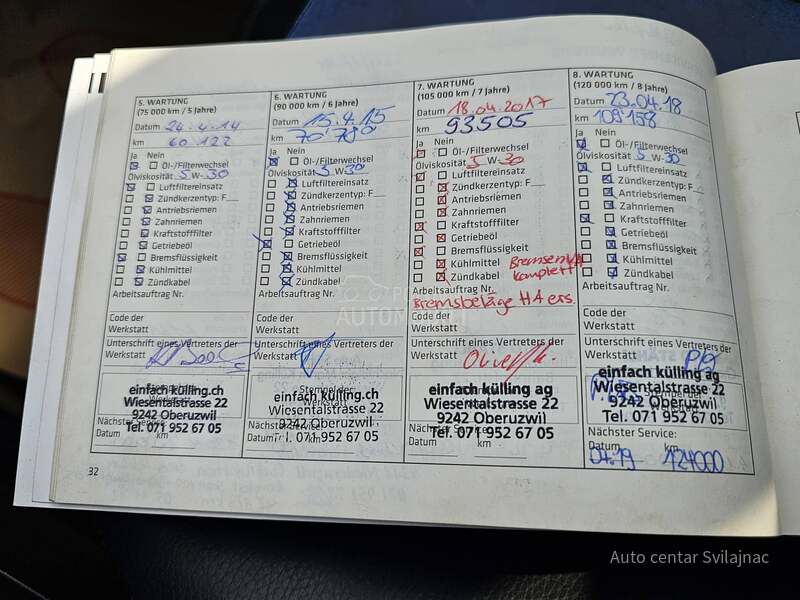 5. WARTUNG
(75 000 km / 5 Jahre)
Datum 24.4.14
km 60.122
Ja Nein
Öl-/Filterwechsel
Ölviskosität 5 W-30
Luftfiltereinsatz
Zündkerzentyp: F
Antriebsriemen
Zahnriemen
Kraftstofffilter
Getriebeöl
Bremsflüssigkeit
Kühlmittel
Zündkabel
Arbeitsauftrag Nr.
Code der
Werkstatt
Unterschrift eines Vertreters der
Werkstatt
einfach külling.ch
Wiesentalstrasse 22
9242 Oberuzwil
Tel. 071 952 67 05
Nächster Service:
Datum km
32
6. WARTUNG
(90 000 km / 6 Jahre)
Datum 15.4.15
km 70'780
Ja Nein
Öl-/Filterwechsel
Ölviskosität 5 W-30
Luftfiltereinsatz
Zündkerzentyp: F
Antriebsriemen
Zahnriemen
Kraftstofffilter
Getriebeöl
Bremsflüssigkeit
Kühlmittel
Zündkabel
Arbeitsauftrag Nr.
Code der
Werkstatt
Unterschrift eines Vertreters der
Werkstatt
Stempel der
Werkstatt
einfach külling.ch
Wiesentalstrasse 22
9242 Oberuzwil
071 952 67 05
Datum km
7. WARTUNG
(105 000 km / 7 Jahre)
Datum 18.04.2017
km 93505
Ja Nein
Öl-/Filterwechsel
Ölviskosität 5 W-30
Luftfiltereinsatz
Zündkerzentyp: F
Antriebsriemen
Zahnriemen
Kraftstofffilter
Getriebeöl
Bremsflüssigkeit
Kühlmittel
Zündkabel
Bremsen VA
komplett
Arbeitsauftrag Nr.
Bremsbeläge HA ers.
Code der
Werkstatt
Unterschrift eines Vertreters der
Werkstatt
einfach külling ag
Wiesentalstrasse 22
9242 Oberuzwil
Tel. 071 952 67 05
Nächster Service:
Datum km
8. WARTUNG
(120 000 km / 8 Jahre)
Datum 23.04.18
km 109'158
Ja Nein
Öl-/Filterwechsel
Ölviskosität 5 W-30
Luftfiltereinsatz
Zündkerzentyp: F
Antriebsriemen
Zahnriemen
Kraftstofffilter
Getriebeöl
Bremsflüssigkeit
Kühlmittel
Zündkabel
Arbeitsauftrag Nr.
Code der
Werkstatt
Unterschrift eines Vertreters der
Werkstatt
einfach külling ag
Wiesentalstrasse 22
9242 Oberuzwil
Tel. 071 952 67 05
Nächster Service:
Datum km
04.19 124000
Auto centar Svilajnac